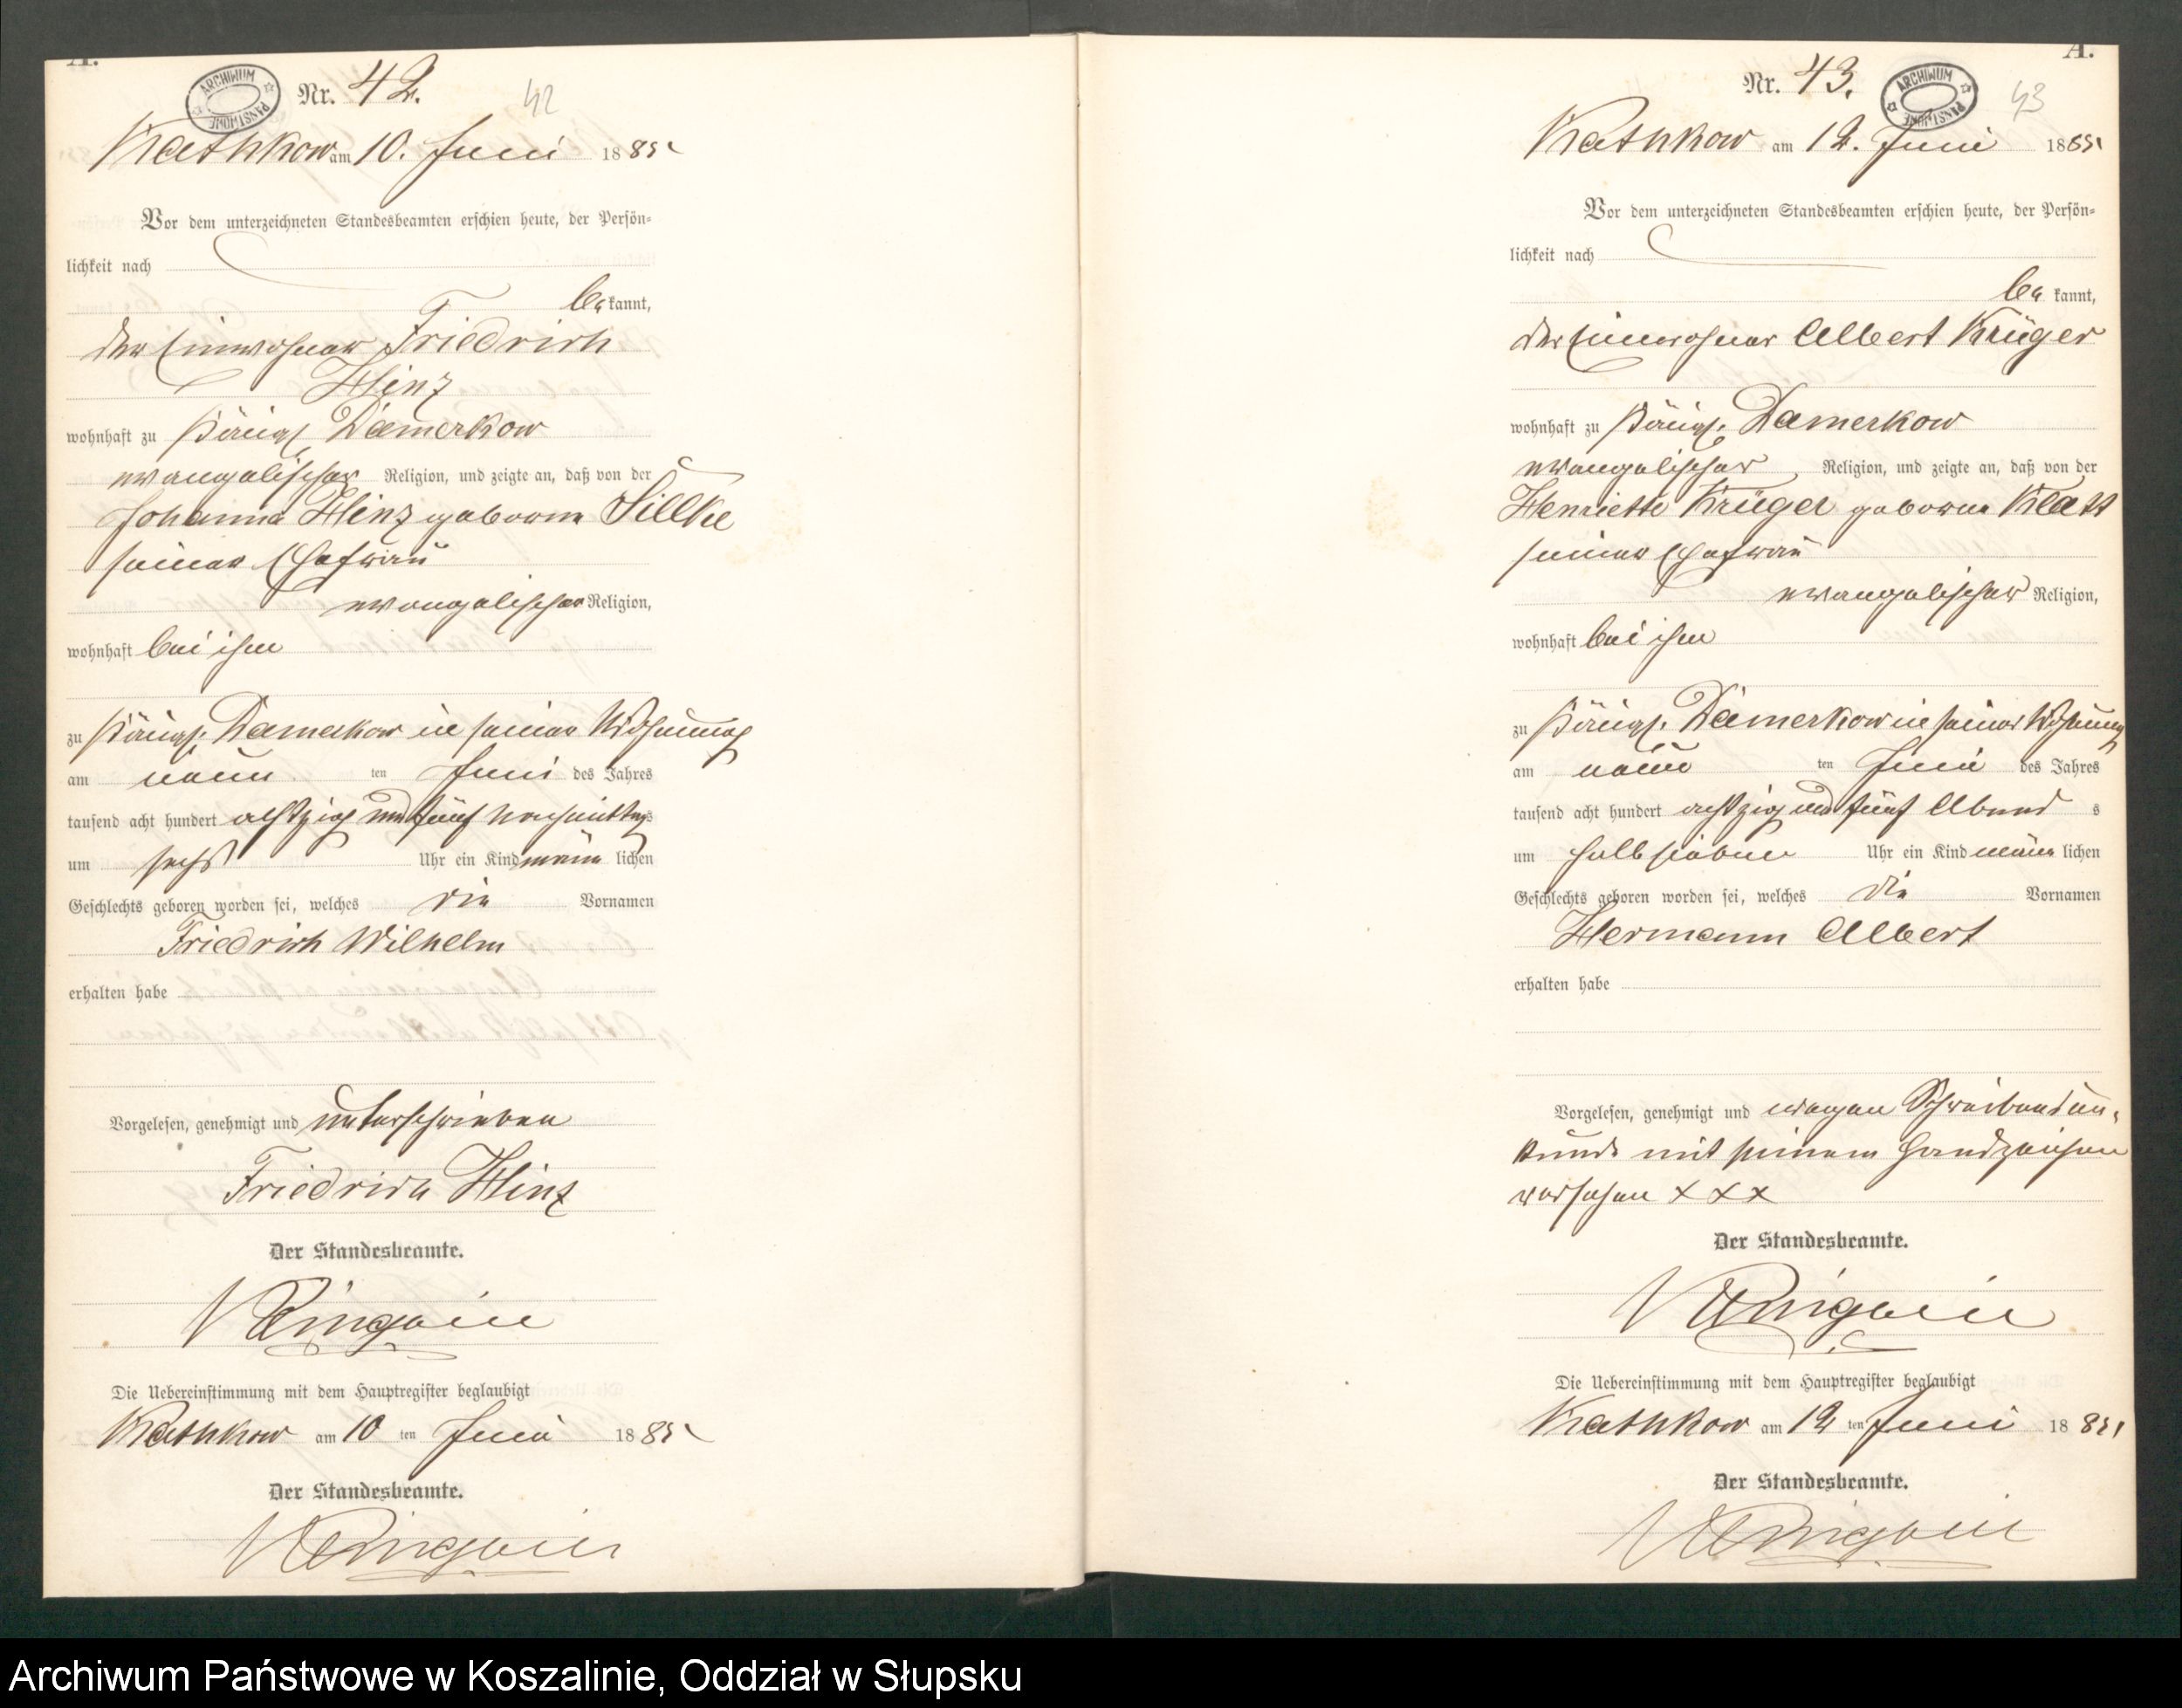 A.
ARCHIWUM PAŃSTWOWE
Nr. 42.
42
Kathkow am 10. Juni 1885
Vor dem unterzeichneten Standesbeamten erschien heute, der Persön-
lichkeit nach
be kannt,
der Einwohner Friedrich
Hinz
wohnhaft zu Königl. Damerkow
evangelischer Religion, und zeigte an, daß von der
Johanna Hinz geborne Sillke
seiner Ehefrau
evangelischer Religion,
wohnhaft bei ihm
zu Königl. Damerkow in seiner Wohnung
am neun ten Juni des Jahres
tausend acht hundert achtzig und fünf Nachmittags
um sechs Uhr ein Kind männ lichen
Geschlechts geboren worden sei, welches die Vornamen
Friedrich Wilhelm
erhalten habe
Vorgelesen, genehmigt und unterschrieben
Friedrich Hinz
Der Standesbeamte.
Die Uebereinstimmung mit dem Hauptregister beglaubigt
Kathkow am 10 ten Juni 1885
Der Standesbeamte.
A.
Nr. 43.
ARCHIWUM PAŃSTWOWE
43
Kathkow am 12. Juni 1885
Vor dem unterzeichneten Standesbeamten erschien heute, der Persön-
lichkeit nach
be kannt,
der Einwohner Albert Krüger
wohnhaft zu Königl. Damerkow
evangelischer Religion, und zeigte an, daß von der
Henriette Krüger geborne Klatt
seiner Ehefrau
evangelischer Religion,
wohnhaft bei ihm
zu Königl. Damerkow in seiner Wohnung
am neun ten Juni des Jahres
tausend acht hundert achtzig und fünf Abend s
um halb sieben Uhr ein Kind männ lichen
Geschlechts geboren worden sei, welches die Vornamen
Hermann Albert
erhalten habe
Vorgelesen, genehmigt und wegen Schreibensun-
kunde mit seinem Handzeichen
versehen x x x
Der Standesbeamte.
Die Uebereinstimmung mit dem Hauptregister beglaubigt
Kathkow am 12 ten Juni 1885
Der Standesbeamte.
Archiwum Państwowe w Koszalinie, Oddział w Słupsku